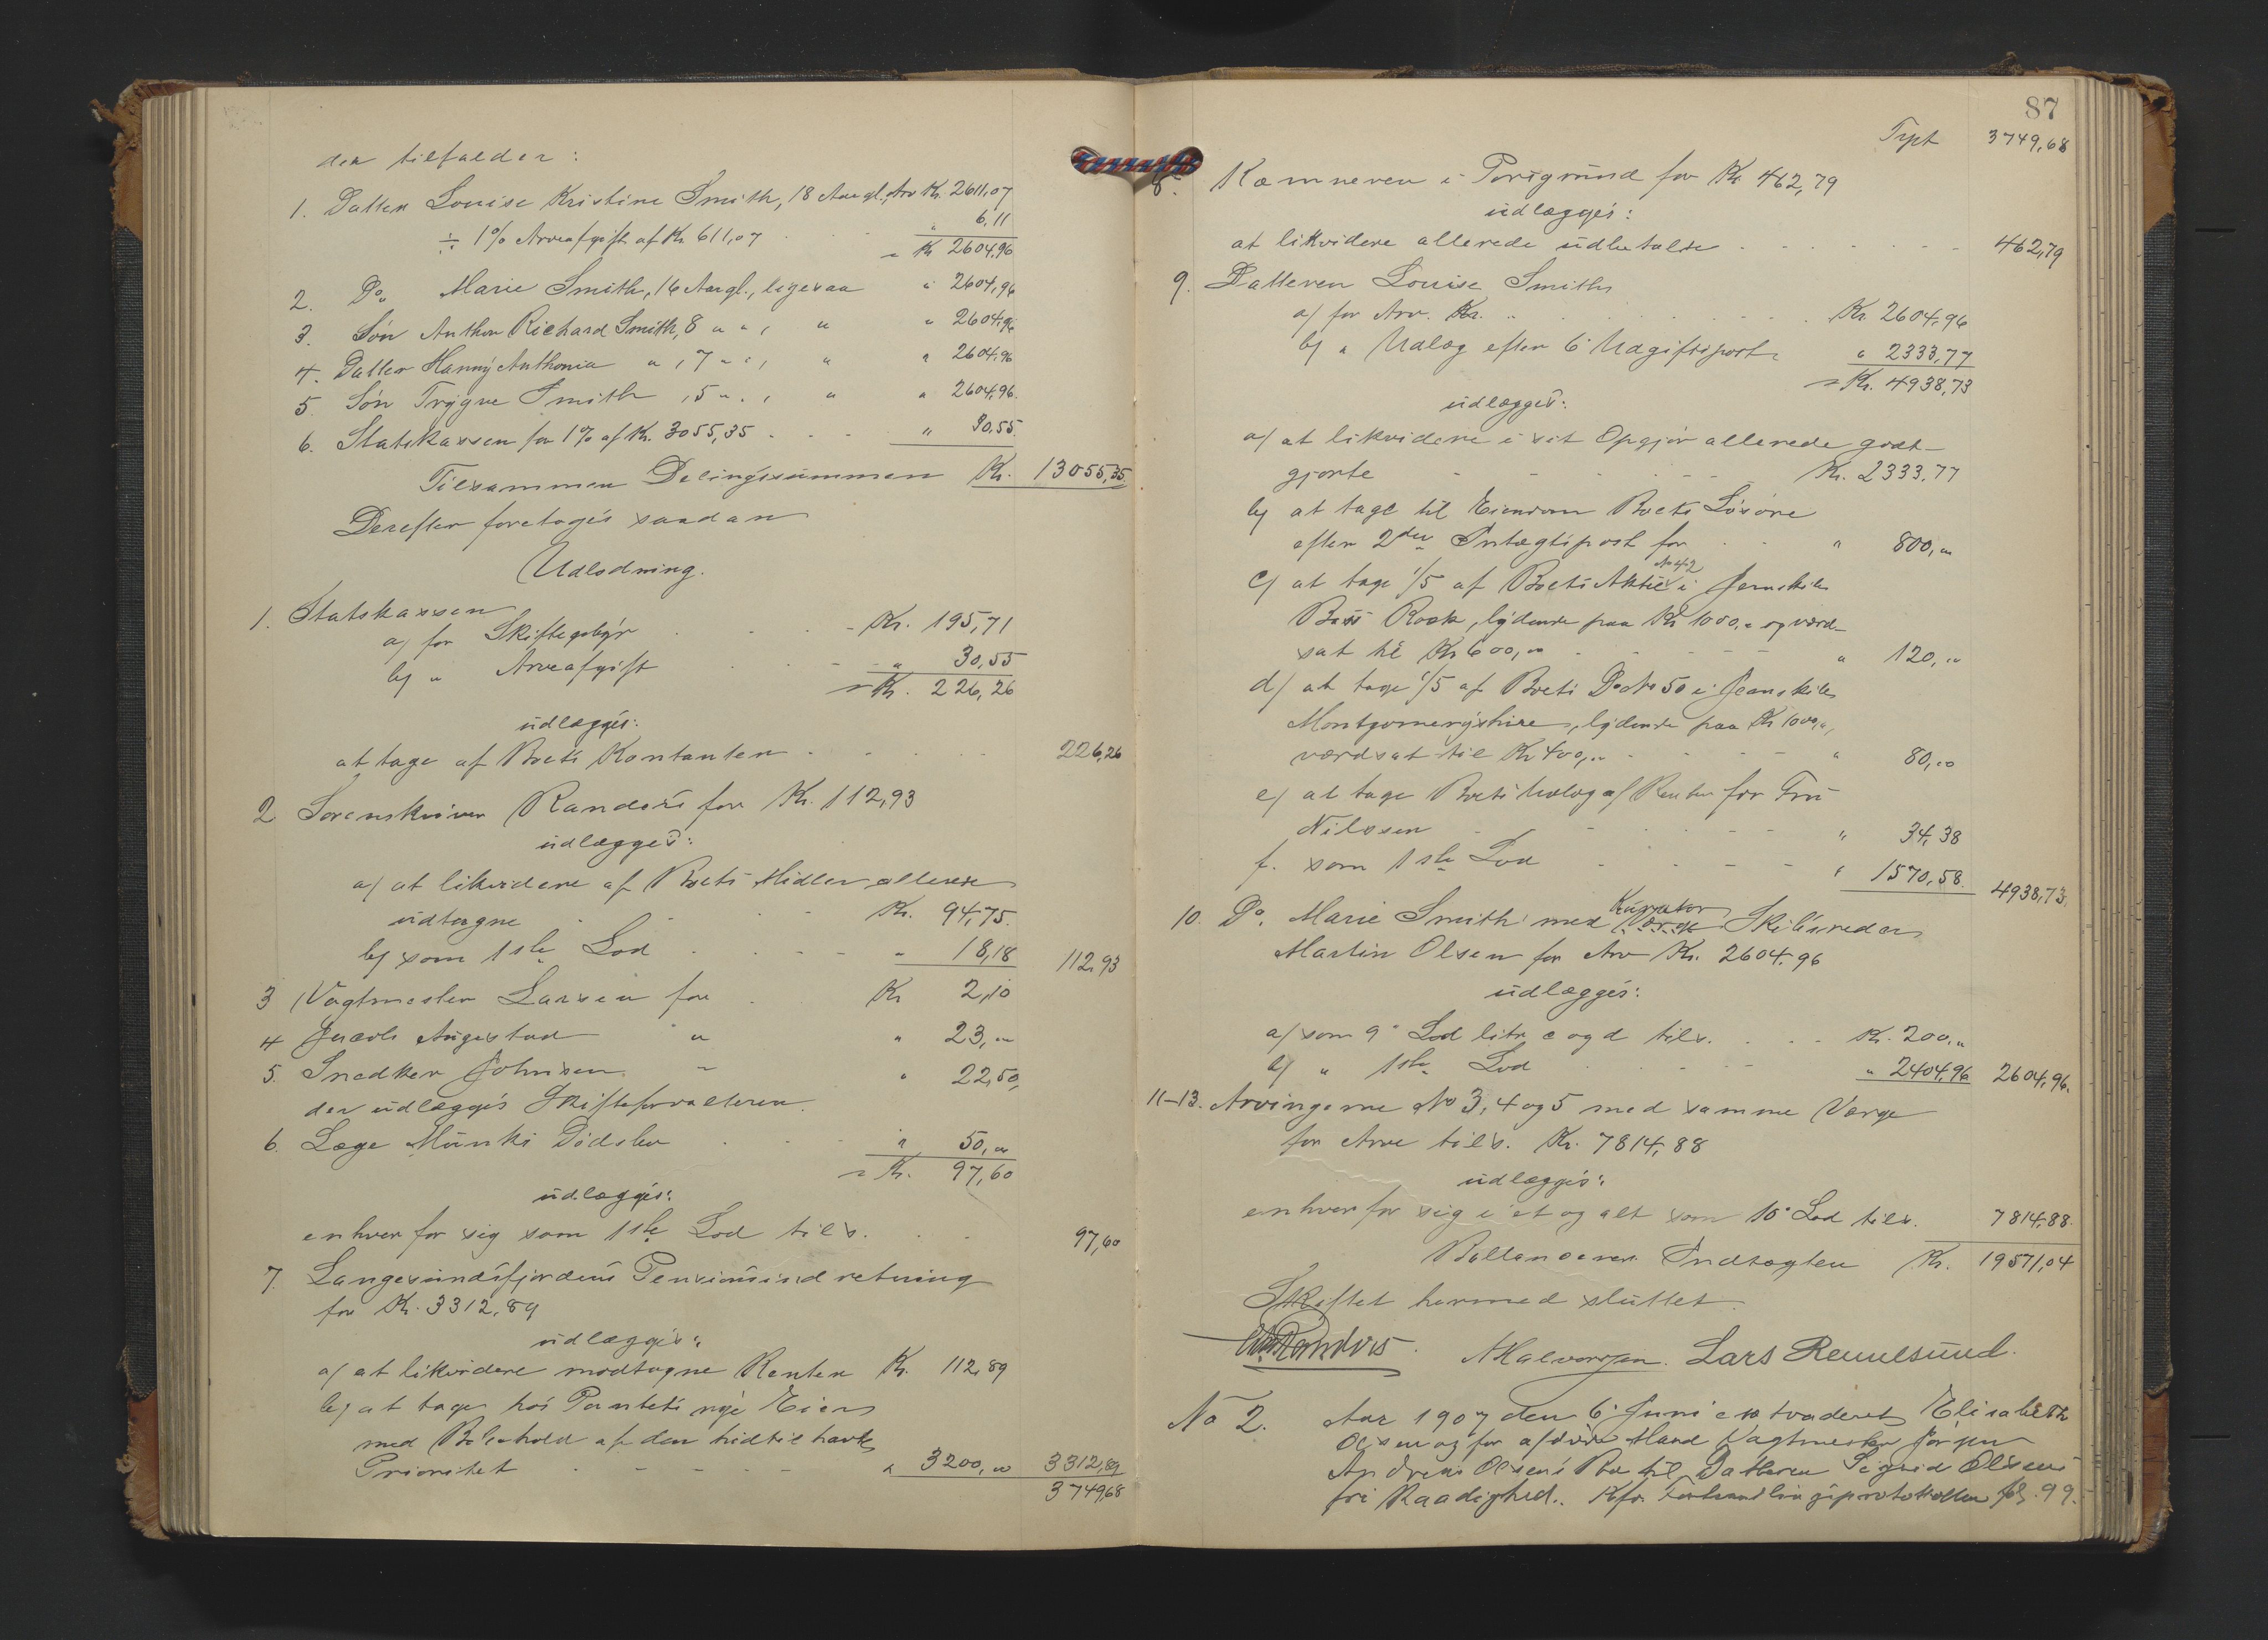 der tilfalder:
1. Datter Louise Kristine Smith, 18 Aar gl., Arv Kr. 2611,07
÷ 1% Arveafgift af Kr. 611,07 " 6,11
= Kr 2604,96
2. Do. Marie Smith, 16 Aar gl., ligesaa " 2604,96
3. Søn Anthon Richard Smith, 8 " " , " " 2604,96
4. Datter Hanny Anthonia " , 7 " " , " " 2604,96
5. Søn Trygve Smith , 5 " " , " " 2604,96.
6. Statskassen for 1% af Kr. 3055,35 " 30,55.
Tilsammen Delingssummen Kr. 13055,35.
Derefter foretoges saadan
Udlodning.
1. Statskassen
a) for Skiftegebyr Kr. 195,71
b) " Arveafgift " 30,55
= Kr. 226,26
udlægges:
at tage af Boets Kontanter 226,26
2 Sorenskriver Randers for Kr. 112,93
udlægges:
a) at likvidere af Boets Midler allerede
udtagne Kr. 94,75.
b) som 1ste Lod " 18,18 112,93
3 Vagtmester Larsen for Kr 2,10
4 Jacob Augestad " " 23,"
5. Snedker Johnsen " " 22,50,
der udlægges Skifteforvalteren.
6. Læge Munks Dødsbo " 50,"
= Kr. 97,60
udlægges:
enhver for sig som 1ste Lod tils. 97,60
7. Langesundsfjordens Pensionsindretning
for Kr. 3312,89
udlægges:
a) at likvidere modtagne Renter Kr. 112,89
b) at tage hos Pantets nye Eier
med Beholdt af den hidtil havte
Prioritet " 3200,00 3312,89
3749,68
87
Trpt 3749,68
8. Kæmneren i Porsgrund for Kr. 462,79
udlægges:
at likvidere allerede udbetalte 462,79
9. Datteren Louise Smith
a) for Arv. Kr. " Kr. 2604,96
b) " Udlæg efter 6. Udgiftspost " 2333,77
= Kr. 4938,73
udlægges:
a) at likvidere i sit Opgjør allerede godt-
gjorte Kr. 2333,77
b) at tage til Eiendom Boets Løsøre
efter 2den Indtægtspost for " 800,"
c) at tage 1/5 af Boets Aktie No 42 i Jernskibs
Bass Rock, lydende paa Kr 1000," og værd-
sat til Kr 600," " 120,"
d) at tage 1/5 af Boets Do No 50 i Jernskibs
Montgomeryshire, lydende paa Kr 1000,",
værdsat til Kr 400," " 80,00
e) at tage Boets Udlæg af Renter for Fru
Nilssen " 34,38
f. som 1ste Lod " 1570,58. 4938,73.
10. Do. Marie Smith med Kurator Værge Skibsreder
Martin Olsen for Arv Kr. 2604,96
udlægges:
a) som 9. Lod litr c og d tils. Kr. 200,"
b) " 1ste Lod " 2404,96 2604,96.
11-13. Arvingerne No 3, 4 og 5 med samme Værge
for Arve tils. Kr. 7814,88
udlægges:
enhver for sig i et og alt som 10. Lod tils. 7814,88.
Ballancerer Indtægten Kr. 19571,04
Skiftet hermed sluttet.
Randers. AHalvorsen. Lars Reuelsund.
No 2. Aar 1907 den 6. Juni extraderet Elisabeth
Olsen og før afdøde Mand Vagtmester Jørgen
Andreas Olsens Bo til Datteren Sigrid Olsens
fri Raadighed. Kfr. Forhandlingsprotokollen fol. 99.